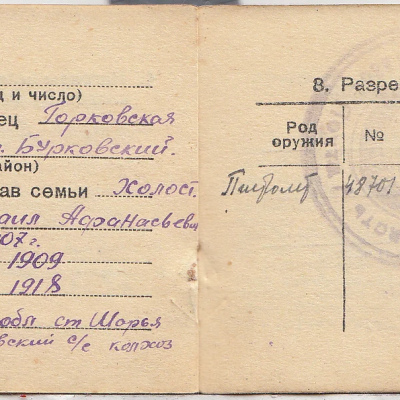 ц и число)
ец Горковская
. Бурковский.
айон)
ав семьи Холост.
аил Афанасьеви
07 г.
1909
1918
обл ст. Шарья
вский с/с колхоз
8. Разре
Род оружия №
Пистолет 48701